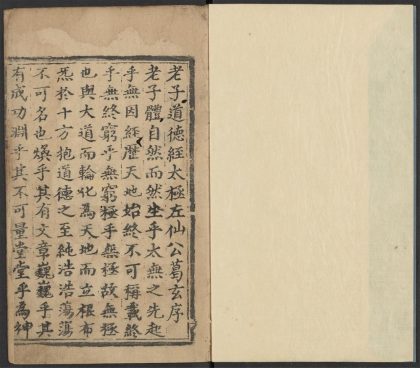 老子道德經太極左仙公葛玄序
老子體自然而然生乎太無之先起
乎無因經歷天地始終不可稱載終
乎無終窮乎無窮極乎無極故無極
也與大道而輪化為天地而立根布
炁於十方抱道德之至純浩浩蕩蕩
不可名也煥乎其有文章巍巍乎其
有成功淵乎其不可量堂堂乎為神